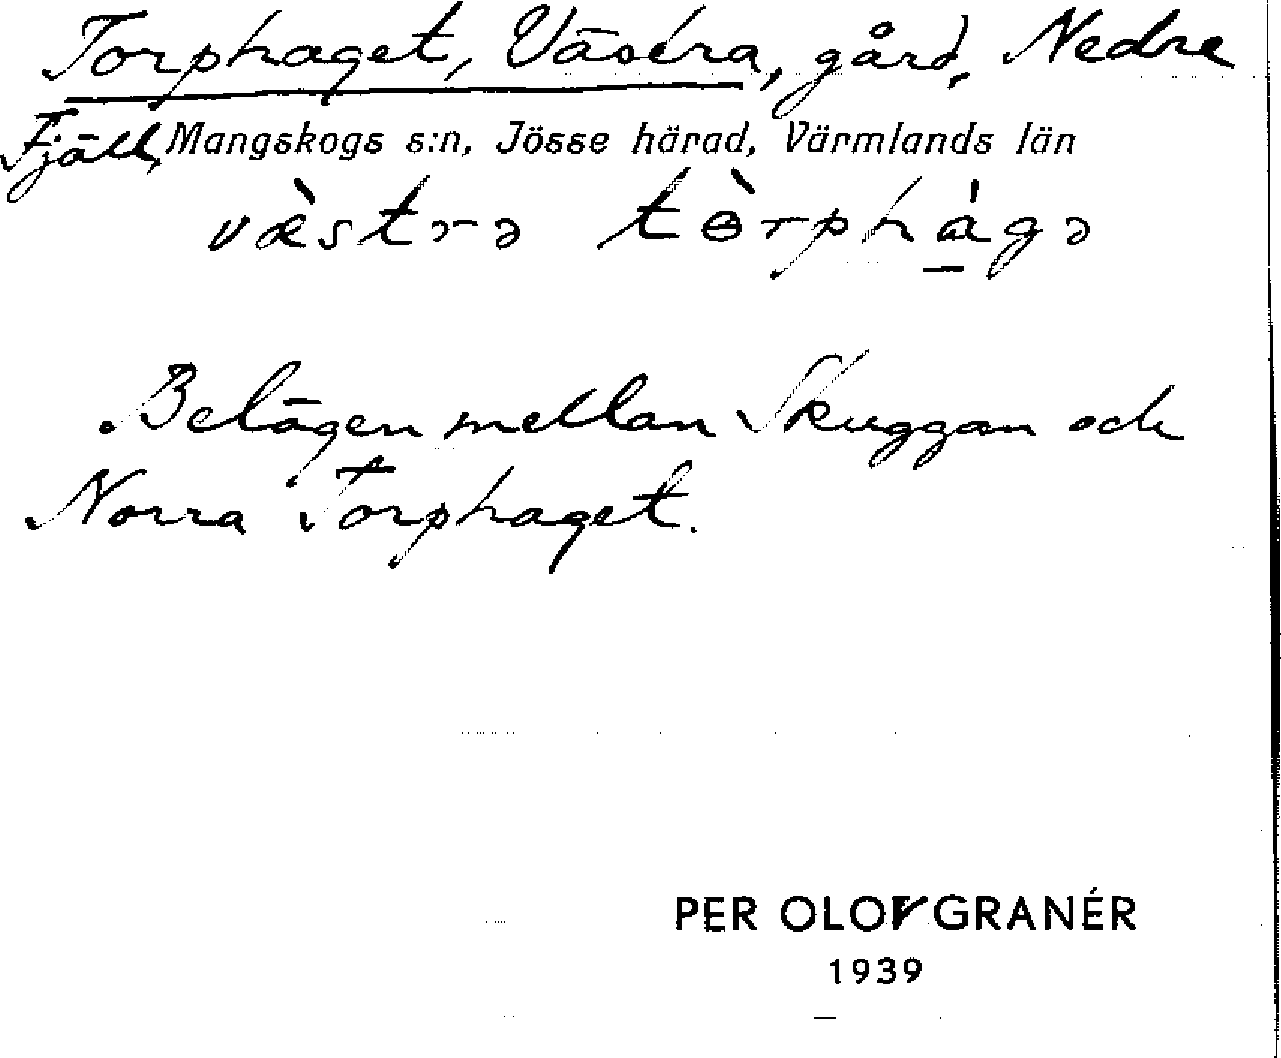 Torphaget, Västra, gård, Nedre
Fjäll, Mangskogs s:n, Jösse härad, Värmlands län
væ̀strə tɵ̀rphá̱gə
Belägen mellan Skuggan och
Norra Torphaget.
PER OLOF GRANÉR
1939